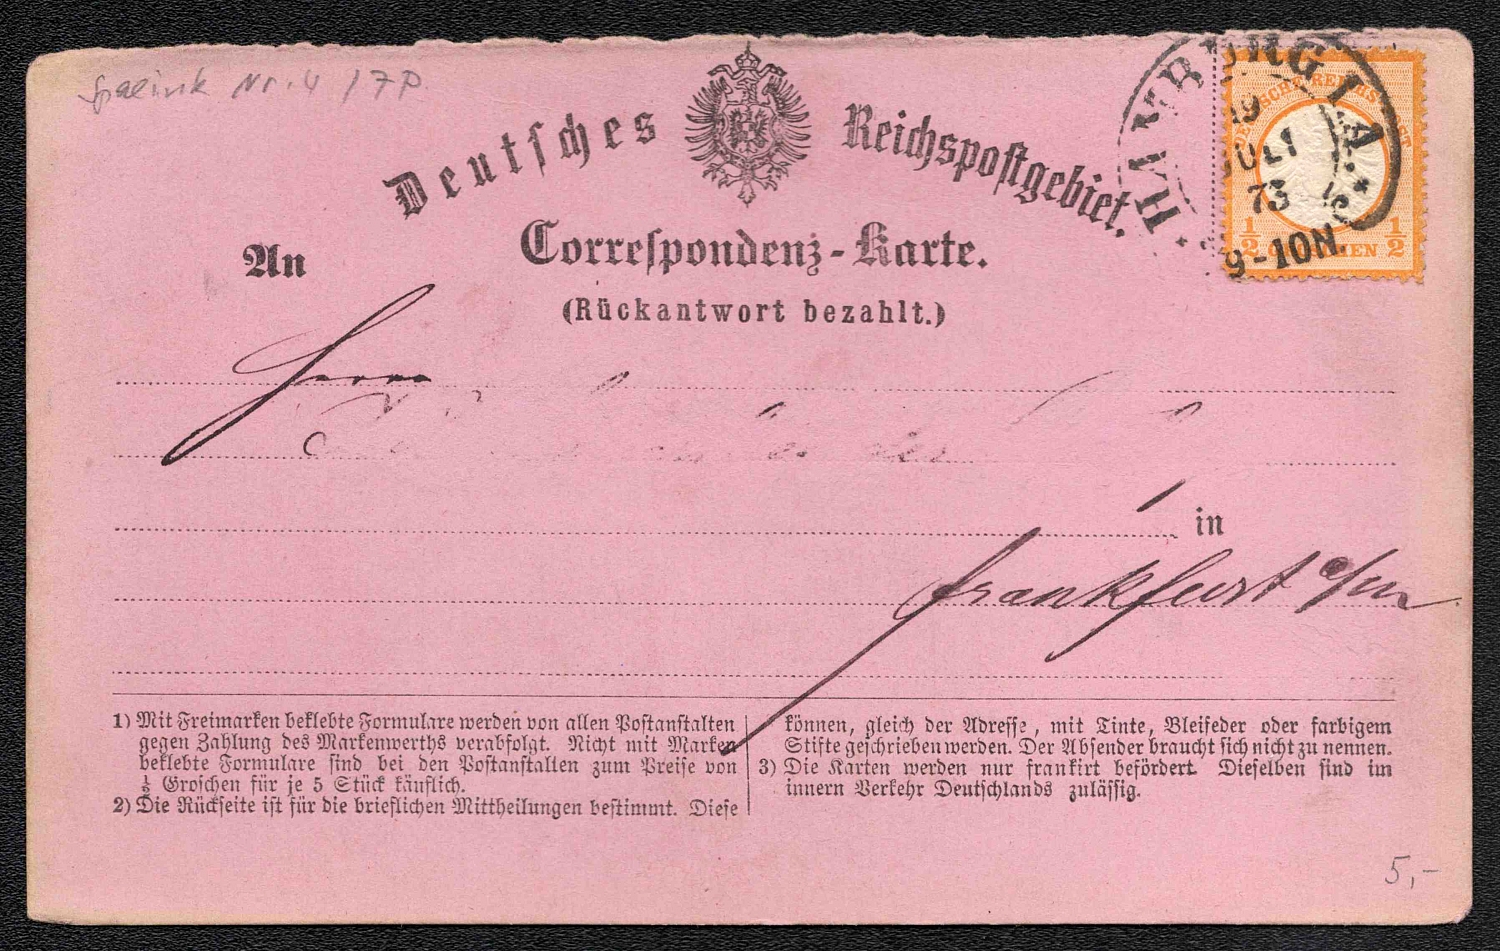 Nr. 4 / 7P
Deutsches Reichspostgebiet.
HAMBURG I.A.
19
JULI
73
9-10N.
DEUTSCHE REICHS-POST
1/2 1/2
An
Correspondenz-Karte.
(Rückantwort bezahlt.)
Herrn
in
Frankfurt a/m
1) Mit Freimarken beklebte Formulare werden von allen Postanstalten
gegen Zahlung des Markenwerths verabfolgt. Nicht mit Marken
beklebte Formulare sind bei den Postanstalten zum Preise von
½ Groschen für je 5 Stück käuflich.
2) Die Rückseite ist für die brieflichen Mittheilungen bestimmt. Diese
können, gleich der Adresse, mit Tinte, Bleifeder oder farbigem
Stifte geschrieben werden. Der Absender braucht sich nicht zu nennen.
3) Die Karten werden nur frankirt befördert. Dieselben sind im
innern Verkehr Deutschlands zulässig.
5,-